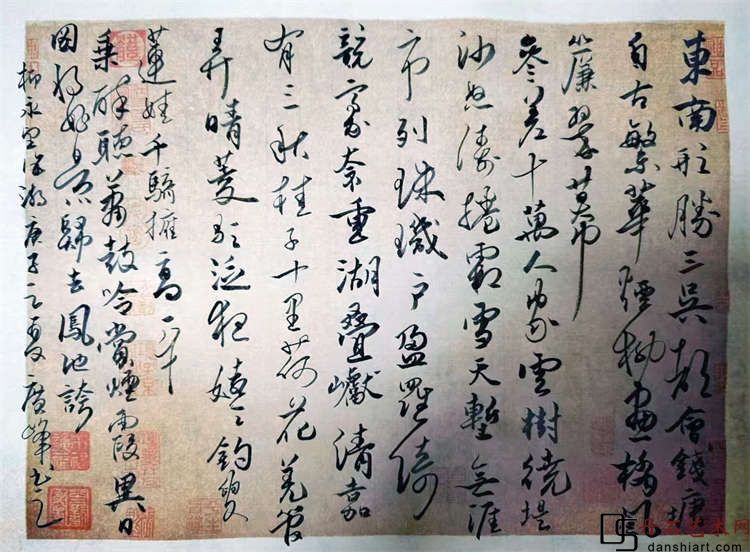 東南形勝三吳都會錢塘
自古繁華煙柳畫橋風
簾翠幕
參差十萬人家雲樹繞堤
沙怒濤捲霜雪天塹無涯
市列珠璣戶盈羅綺
競豪奢重湖疊巘清嘉
有三秋桂子十里荷花羌管
弄晴菱歌泛夜嬉々釣叟
蓮娃千騎擁高牙
乘醉聽簫鼓吟賞煙霞異日
圖將好景歸去鳳池誇
柳永望海潮庚子之夏廣峰書之
danshiart.com